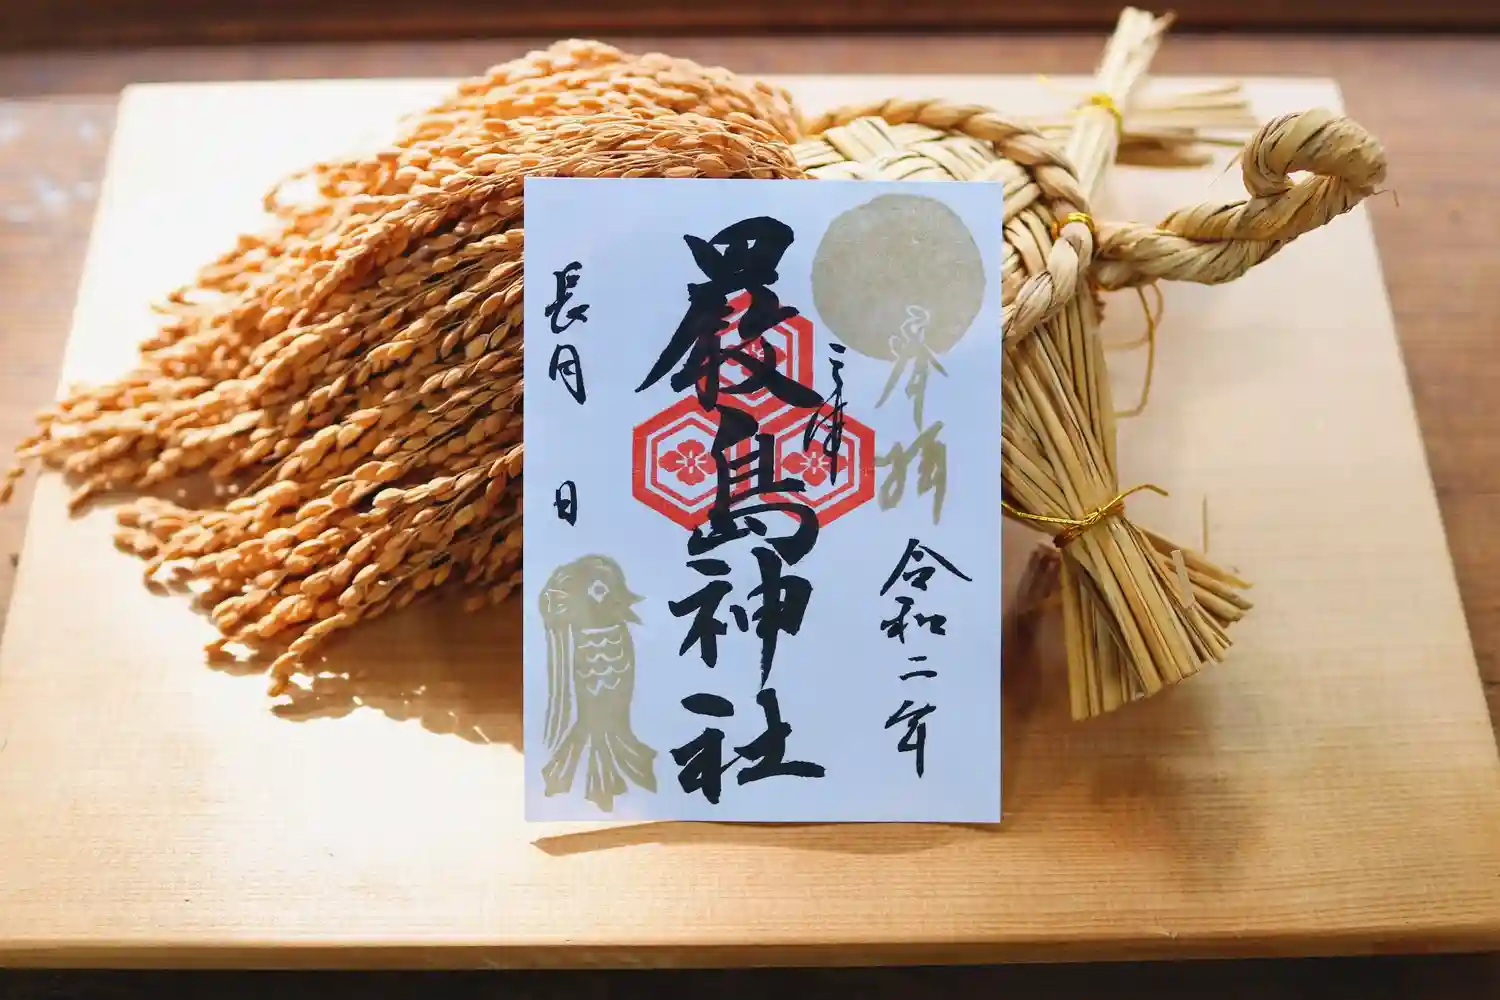 奉拝
令和二年
三津
厳島神社
長月 日